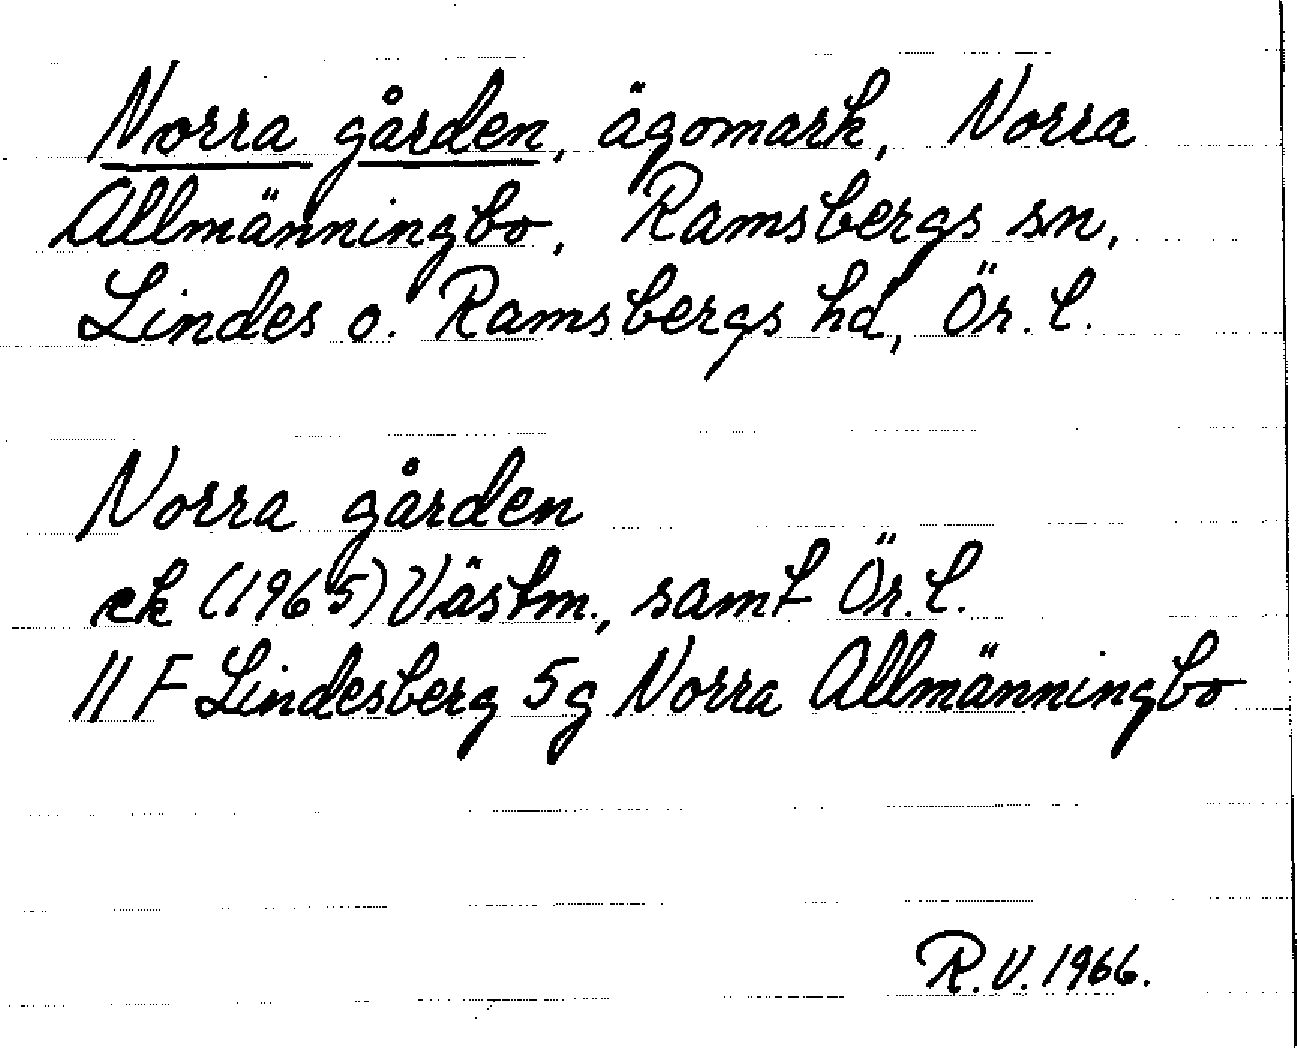 Norra gården, ägomark, Norra
Allmänningbo, Ramsbergs sn,
Lindes o. Ramsbergs hd, Ör. l.
Norra gården
ek (1965) Västm., samt Ör. l.
11 F Lindesberg 5g Norra Allmänningbo
R.V. 1966.